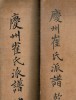 慶州崔氏派譜
慶州崔氏派譜